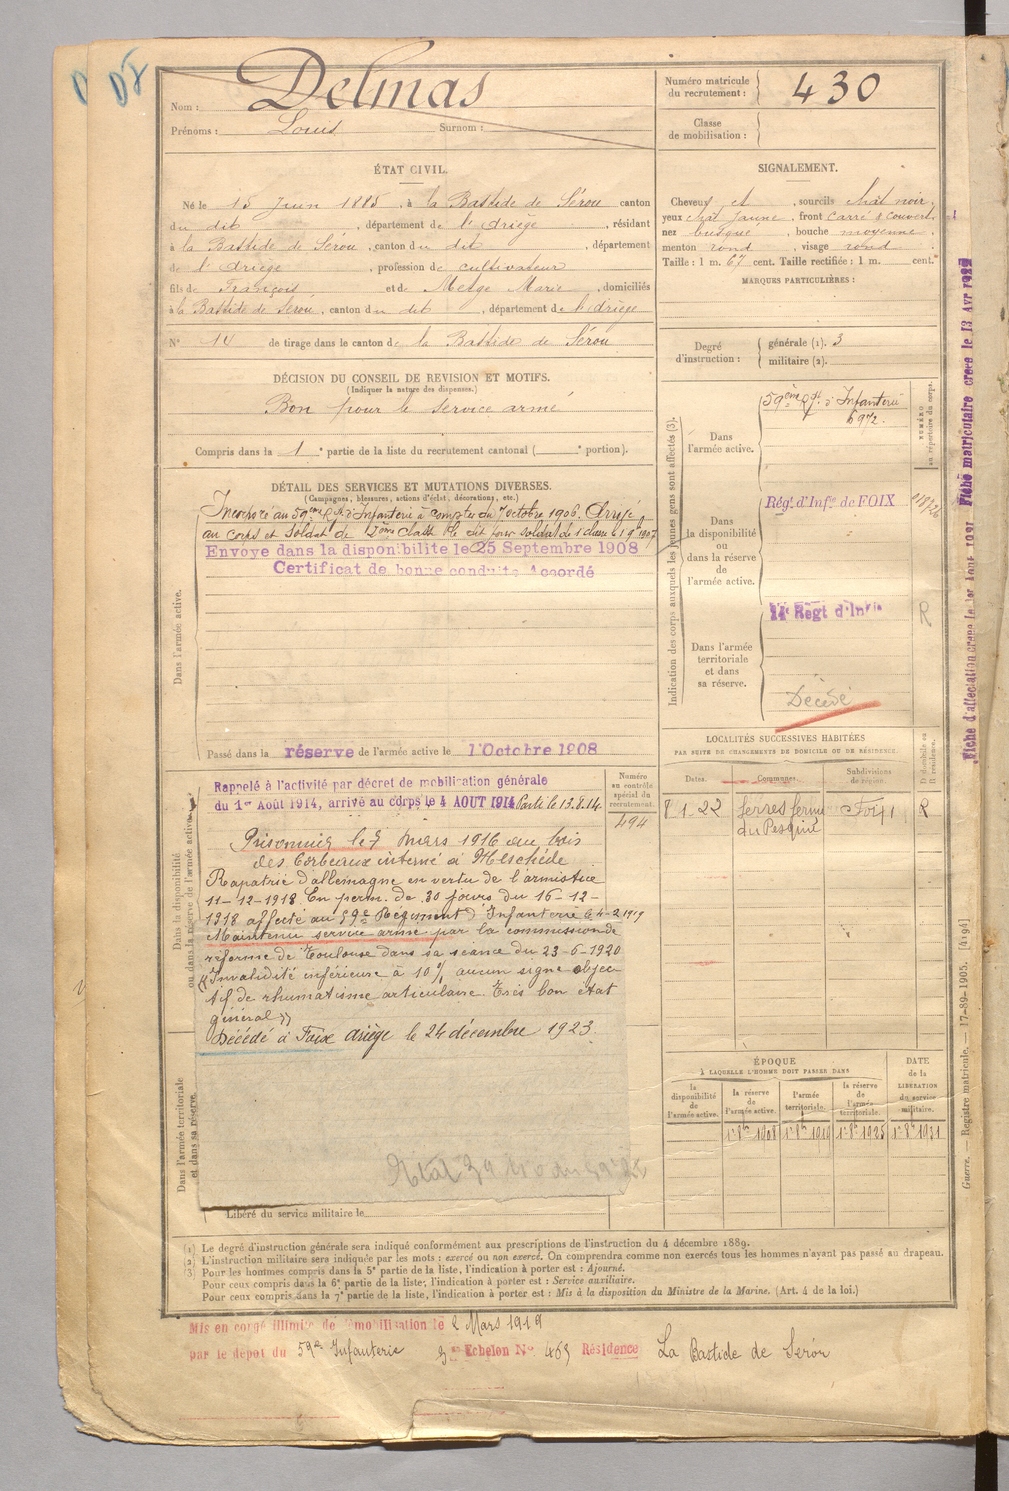 Nom : Delmas
Prénoms : Louis Surnom :
Numéro matricule du recrutement : 430
Classe de mobilisation :
ÉTAT CIVIL.
Né le 15 Juin 1885, à la Bastide de Sérou canton
du dit, département de l'Ariège, résidant
à la Bastide de Sérou, canton du dit, département
de l'Ariège, profession de cultivateur
fils de François et de Metge Marie, domiciliés
à la Bastide de Sérou, canton du dit, département de l'Ariège
N° 14 de tirage dans le canton de la Bastide de Sérou
SIGNALEMENT.
Cheveux et, sourcils chât noir,
yeux chât jaune, front carré & couvert,
nez busqué, bouche moyenne,
menton rond, visage rond
Taille : 1 m. 67 cent. Taille rectifiée : 1 m. cent.
MARQUES PARTICULIÈRES :
Degré d'instruction : générale (1). 3
militaire (2).
DÉCISION DU CONSEIL DE REVISION ET MOTIFS.
(Indiquer la nature des dispenses.)
Bon pour le service armé
Compris dans la 1e partie de la liste du recrutement cantonal ( e portion).
DÉTAIL DES SERVICES ET MUTATIONS DIVERSES.
(Campagnes, blessures, actions d'éclat, décorations, etc.)
Incorporé au 59ème Rgt d'Infanterie à compter du 7 octobre 1906. Arrivé
au corps et soldat de 2ème classe le dit jour soldat de 1 classe le 1 9 1907
Envoyé dans la disponibilite le 25 Septembre 1908
Certificat de bonne conduite Accordé
Dans l'armée active.
Passé dans la réserve de l'armée active le 1 Octobre 1908
Indication des corps auxquels les jeunes gens sont affectés (3).
Dans l'armée active.
59ème Rgt. d'Infanterie
6972.
NUMÉRO au répertoire du corps.
Dans la disponibilité ou dans la réserve de l'armée active.
Régt d'Infie de FOIX
Dans l'armée territoriale et dans sa réserve.
Regt d'Infie
R
Décédé
LOCALITÉS SUCCESSIVES HABITÉES
PAR SUITE DE CHANGEMENTS DE DOMICILE OU DE RÉSIDENCE.
Dates. Communes. Subdivisions de région. D domicile ou R résidence.
8-1-22 Serres ferme Foix R
du Pesquié
Dans la disponibilité ou dans la réserve de l'armée active.
Rappelé à l'activité par décret de mobilisation générale
du 1er Août 1914, arrivé au corps le 4 AOUT 1914 Parti le 13.8.14
Numéro au contrôle spécial du recrutement.
494
Prisonnier le 7 mars 1916 au bois
des Corbeaux interné à Meschède
Rapatrié d'allemagne en vertu de l'armistice
11-12-1918. En perm. de 30 jours du 16-12-
1918 affecté au 59e Régiment d'Infanterie le 4-2 1919
Maintenu service armé par la commission de
réforme de Toulouse dans sa séance du 23-6-1920
« Invalidité inférieure à 10% aucun signe objec
tif de rhumatisme articulaire. Très bon état
général »
Décédé à Foix ariège le 24 décembre 1923.
Dans l'armée territoriale et dans sa réserve.
Libéré du service militaire le
ÉPOQUE
À LAQUELLE L'HOMME DOIT PASSER DANS
la disponibilité de l'armée active. la réserve de l'armée active. l'armée territoriale. la réserve de l'armée territoriale. DATE de la LIBÉRATION du service militaire.
1er 8bre 1908 1er 8bre 1919 1er 8bre 1925 1er 8bre 1931
(1) Le degré d'instruction générale sera indiqué conformément aux prescriptions de l'instruction du 4 décembre 1889.
(2) L'instruction militaire sera indiquée par les mots : exercé ou non exercé. On comprendra comme non exercés tous les hommes n'ayant pas passé au drapeau.
(3) Pour les hommes compris dans la 5e partie de la liste, l'indication à porter est : Ajourné.
Pour ceux compris dans la 6e partie de la liste, l'indication à porter est : Service auxiliaire.
Pour ceux compris dans la 7e partie de la liste, l'indication à porter est : Mis à la disposition du Ministre de la Marine. (Art. 4 de la loi.)
Mis en congé illimité de démobilisation le 2 Mars 1919
par le dépot du 59e Infanterie Echelon N° 463 Résidence La Bastide de Serou
Guerre. — Registre matricule. — 17-89-1905. [4194]
Fiche matriculaire créée le 13 Avr
Fiche d'affectation créée le 1er Août